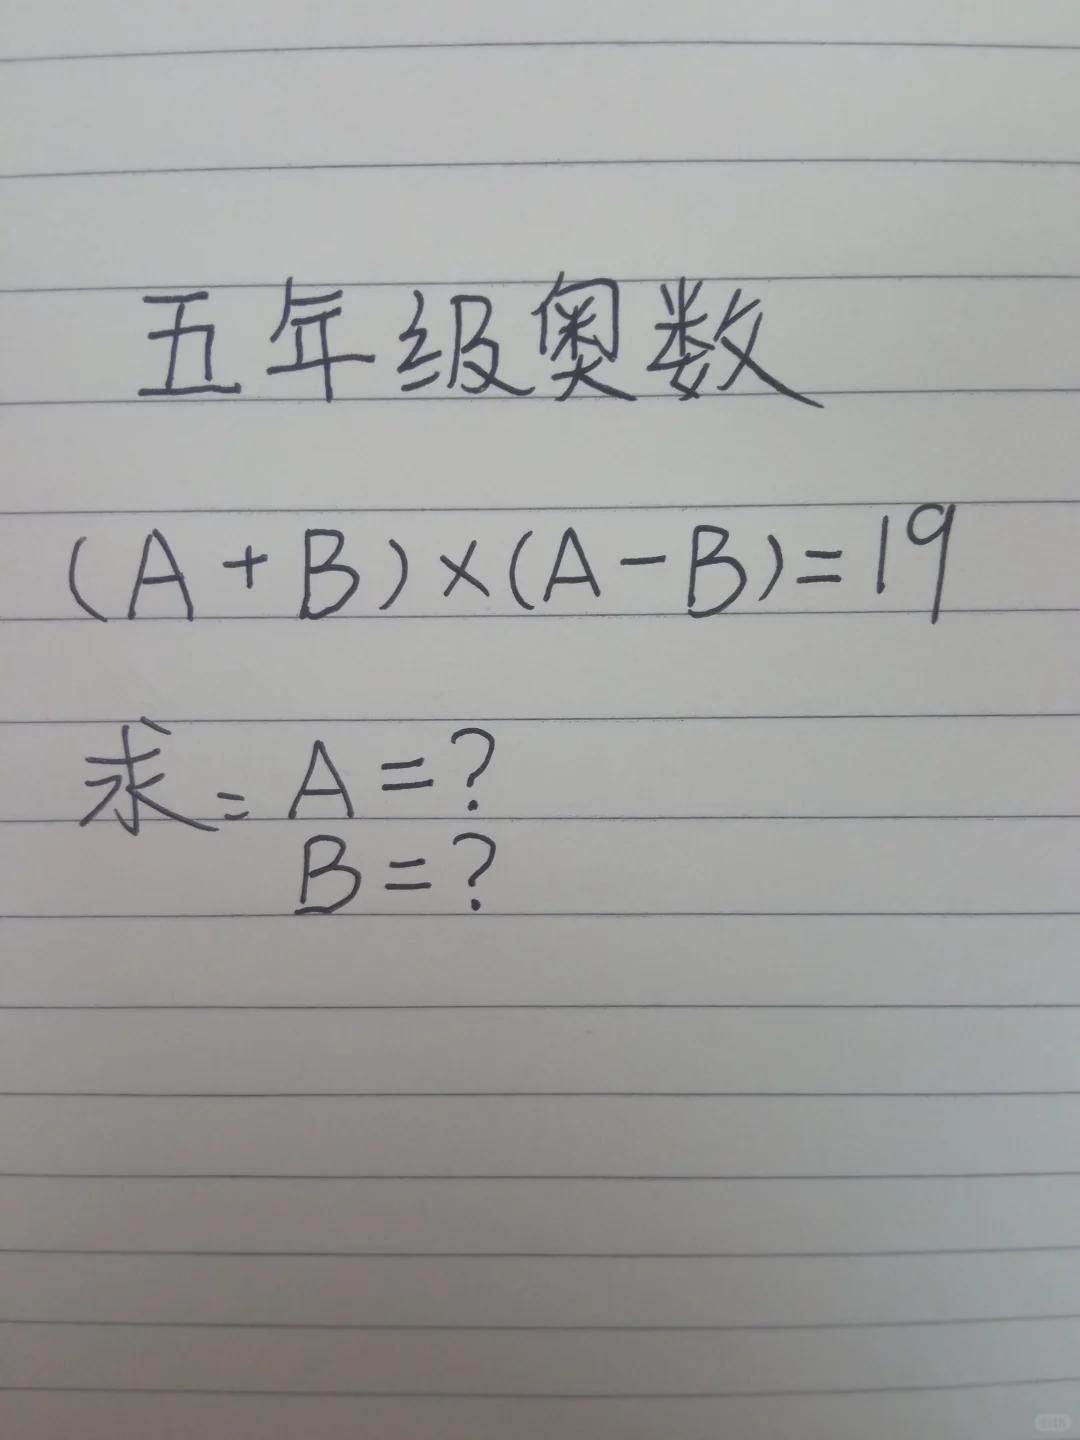 五年级奥数
(A+B)×(A-B)=19
求=A=?
B=?